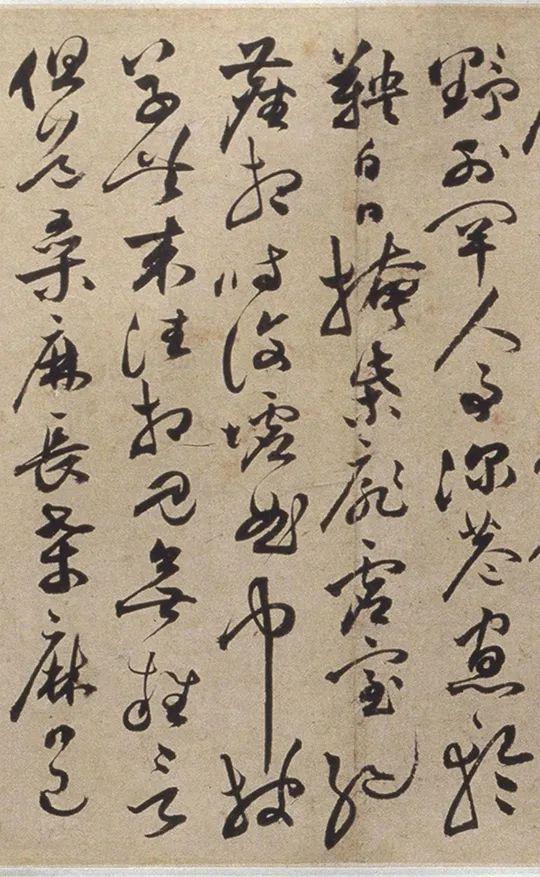 野外罕人事深巷寡輪
鞅白日掩柴扉虛室絕
塵想時復墟曲中披
草共來往相見無雜言
但道桑麻長桑麻日已